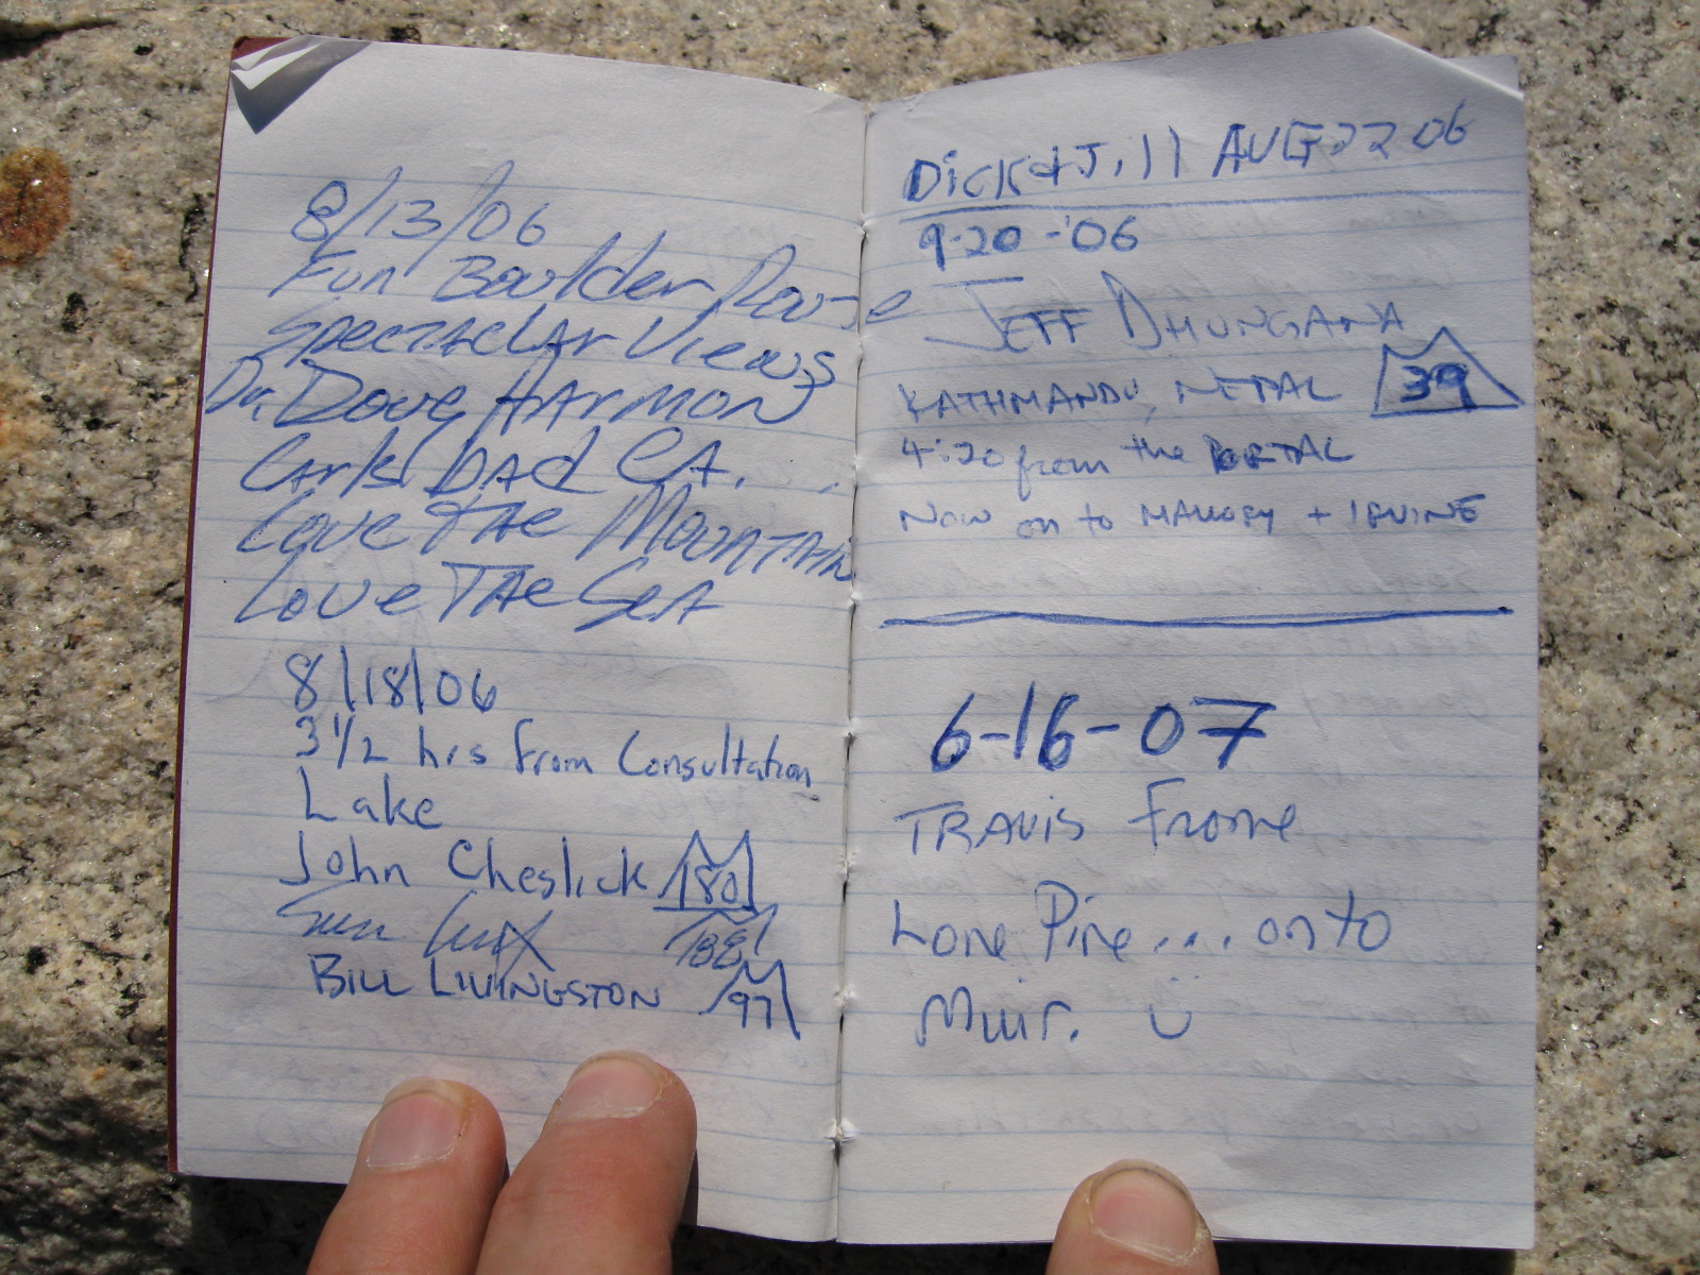 8/13/06
Fun Boulder Route
Spectaclar Views
Dr. Doug HArmon
CArls bAd CA.
Love The Mountain
Love The SeA
8/18/06
3 1/2 hrs from Consultation
Lake
John Cheslick 180
138
BILL LIVINGSTON 97
Dick & Jill AUG 22 06
9-20-'06
JEFF DHUNGANA
KATHMANDU, NEPAL 39
4:20 from the PORTAL
NOW on to MALLORY + IRVINE
6-16-07
TRAVIS Frome
Lone Pine.... onto
Muir.